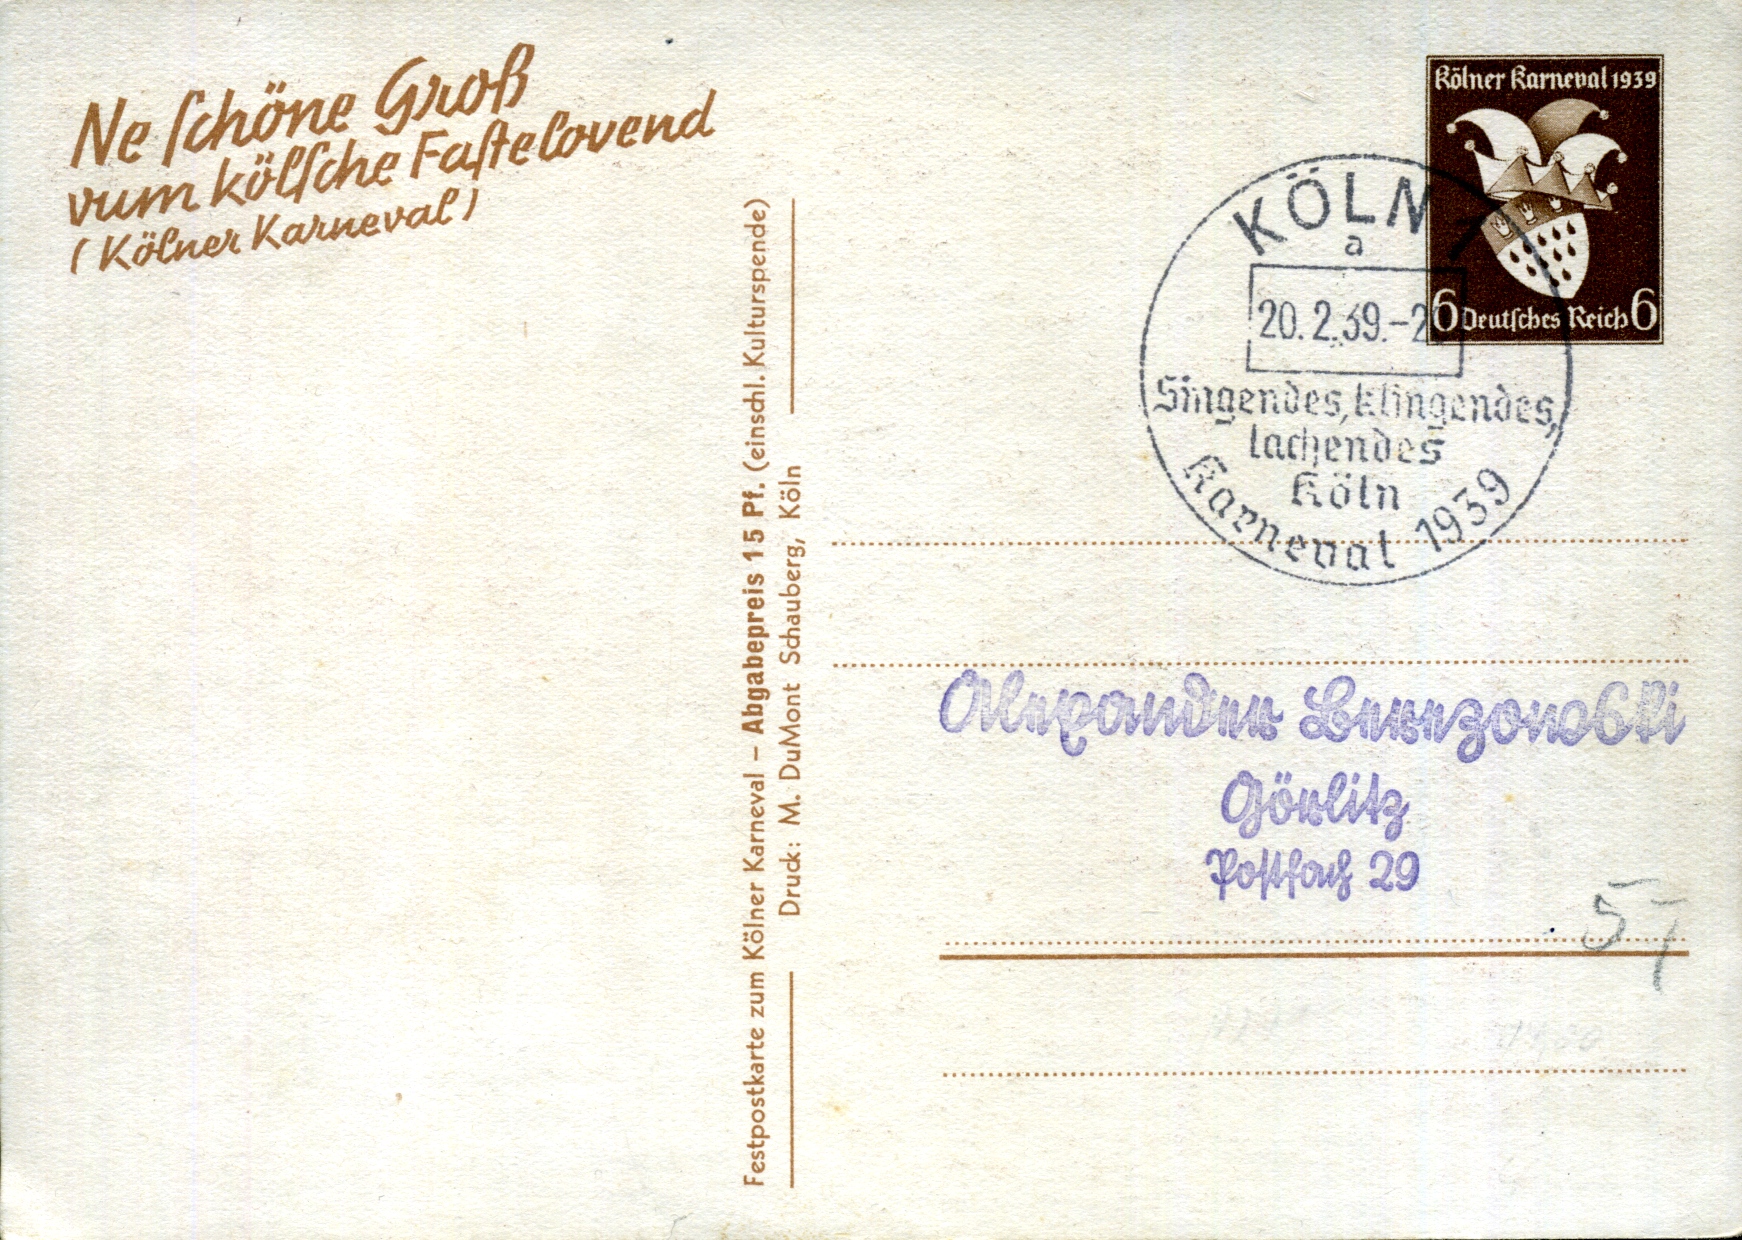 Ne schöne Groß
vum kölsche Fastelovend
(Kölner Karneval)
Kölner Karneval 1939
6 Deutsches Reich 6
KÖLN 1
a
20.2.39.-2
Singendes, klingendes,
lachendes
Köln
Karneval 1939
Festpostkarte zum Kölner Karneval – Abgabepreis 15 Pf. (einschl. Kulturspende)
Druck: M. DuMont Schauberg, Köln
Alexander Berezowski
Görlitz
Postfach 29